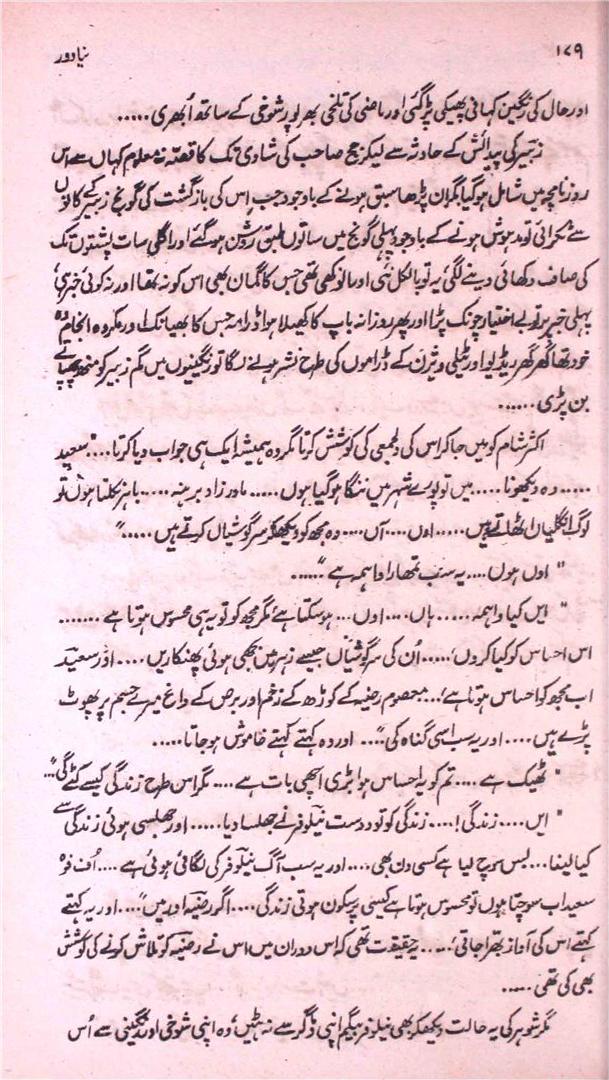 ۱۷۹
نیا دور
اور حال کی رنگین کہانی پھیکی پڑ گئی اور ماضی کی تلخی بھرپور شوخی کے ساتھ اُبھری .....
زبیر کی پیدائش کے حادثہ سے لیکر جج صاحب کی شادی تک کا قصّہ نہ معلوم کہاں سے اس
روزنامچہ میں شامل ہو گیا پڑھا سبق ہونے کے باوجود جب اس کی بازگشت کی گونج زبیر کے کانوں
سے ٹکرائی تو مدہوش ہونے کے باوجود پہلی گونج میں ساتوں طبق روشن ہو گئے اور اگلی سات پشتوں تک
کی صاف دکھائی دینے لگی، یہ تو بالکل نئی اور انوکھی تھی جس کا گمان بھی اس کو نہ تھا اور نہ کوئی خبر ہی
پہلی خبر پر تو بے اختیار چونک پڑا اور پھر روزانہ باپ کا کھیلا ہوا ڈرامہ جس کا بھیانک اور مکروہ انجام وہ
خود تھا گھر گھر ریڈیو اور ٹیلی ویژن کے ڈراموں کی طرح نشر ہونے لگا تو رنگینیوں میں گم زبیر کو منھ چھپاتے
بن پڑی ......
اکثر شام کو میں جا کر اس کی دلجمعی کی کوشش کرتا مگر وہ ہمیشہ ایک ہی جواب دیا کرتا ... "سعید
..... وہ دیکھونا ..... میں تو پورے شہر میں ننگا ہو گیا ہوں ..... مادر زاد برہنہ ..... باہر نکلتا ہوں تو
لوگ انگلیاں اٹھاتے ہیں ..... اوں .... آں .... وہ مجھ کو دیکھ کر سرگوشیاں کرتے ہیں ....."
"اوں ہوں .... یہ سب تمھارا واہمہ ہے" ......
"ایں کیا واہمہ ..... ہاں .... اوں ... ہو سکتا ہے مگر مجھ کو تو یہ ہی محسوس ہوتا ہے .......
اس احساس کو کیا کروں، ..... اُن کی سرگوشیاں جیسے زہر میں بجھی ہوئی پھنکاریں .... اور سعید
اب مجھ کو احساس ہوتا ہے، ... معصوم رضیہ کے کوڑھ کے زخم اور برص کے داغ میرے جسم پر پھوٹ
پڑے ہیں .... اور یہ سب اسی گناہ کی" .... اور وہ کہتے کہتے خاموش ہو جاتا .....
"ٹھیک ہے .... تم کو یہ احساس ہوا بڑی اچھی بات ہے .... مگر اس طرح زندگی کیسے کٹے گی" ...
"ایں .... زندگی! .... زندگی کو تو دوست نیلوفر نے جھلسا دیا ..... اور جھلسی ہوئی زندگی سے
کیا لینا ... بس سوچ لیا ہے کسی دن بھی .... اور یہ سب آگ نیلوفر کی لگائی ہوئی ہے .... اُف فوہ
سعید اب سوچتا ہوں تو محسوس ہوتا ہے کیسی پرسکون ہوتی زندگی .... اگر رضیہ اور میں" .... اور یہ کہتے
کہتے اس کی آواز بھرا جاتی، ..... یہ حقیقت تھی کہ اس دوران میں اس نے رضیہ کو تلاش کرنے کی کوشش
بھی کی تھی .....
مگر شوہر کی یہ حالت دیکھ کر بھی نیلوفر بیگم اپنی ڈگر سے نہ ہٹیں، وہ اپنی شوخی اور رنگینی سے اُس